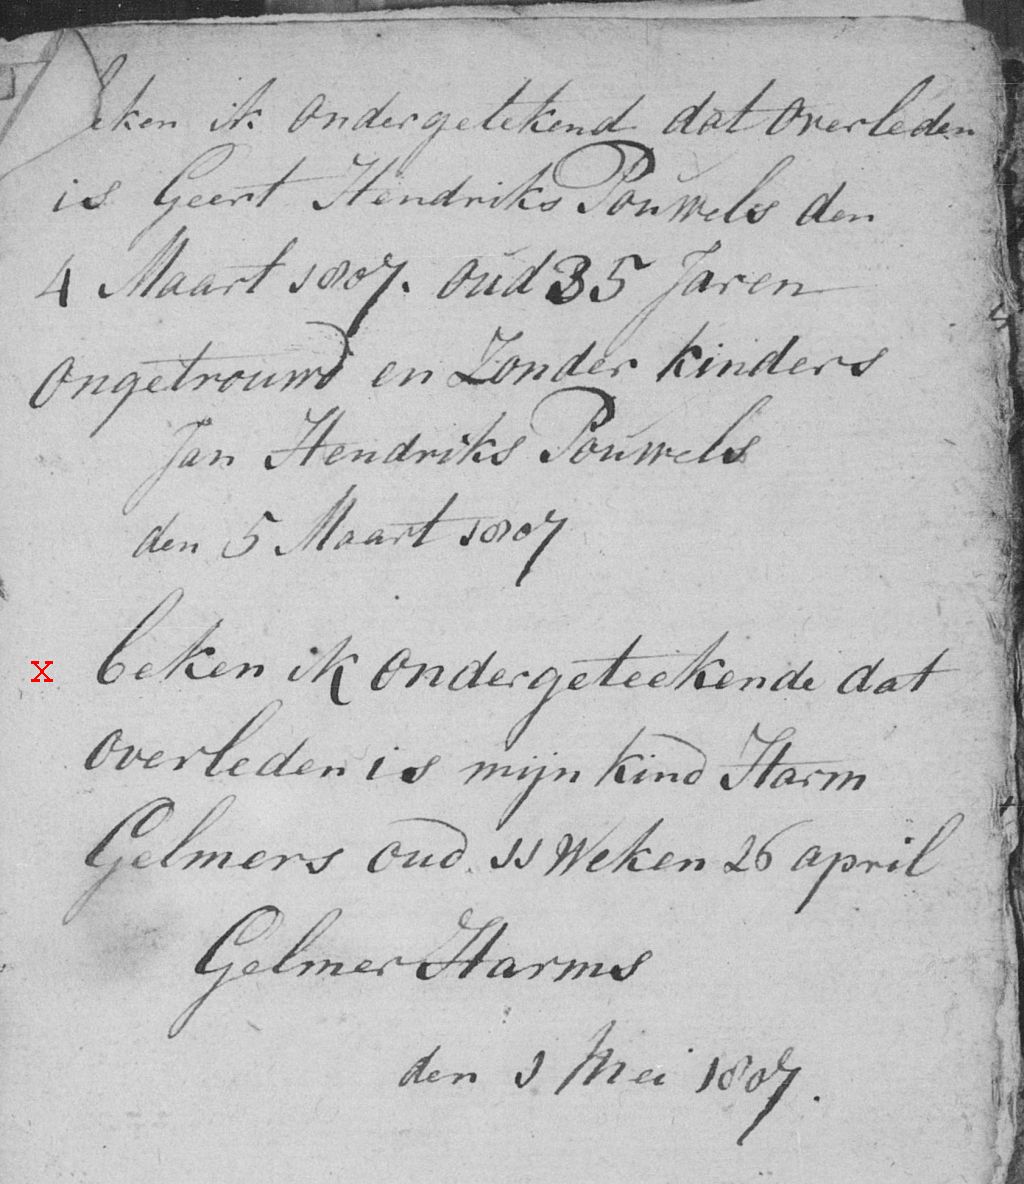 beken ik ondergetekend dat overleden
is Geert Hendriks Pouwels den
4 Maart 1807. oud 35 Jaren
ongetrouwd en Zonder kinders
Jan Hendriks Pouwels
den 5 Maart 1807
x beken ik ondergeteekende dat
overleden is mijn kind Harm
Gelmers oud 11 Weken 26 april
Gelmer Harms
den 1 Mei 1807.